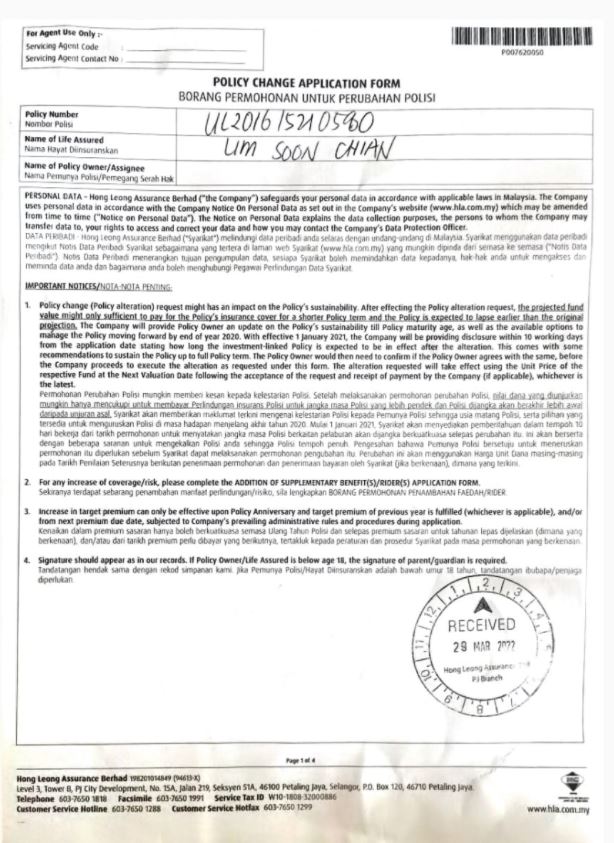 For Agent Use Only :-
Servicing Agent Code :
Servicing Agent Contact No :
P007620050
POLICY CHANGE APPLICATION FORM
BORANG PERMOHONAN UNTUK PERUBAHAN POLISI
Policy Number
Nombor Polisi
UL201615210580
Name of Life Assured
Nama Hayat Diinsuranskan
LIM SOON CHIAN
Name of Policy Owner/Assignee
Nama Pemunya Polisi/Pemegang Serah Hak
PERSONAL DATA - Hong Leong Assurance Berhad ("the Company") safeguards your personal data in accordance with applicable laws in Malaysia. The Company
uses personal data in accordance with the Company Notice On Personal Data as set out in the Company's website (www.hla.com.my) which may be amended
from time to time ("Notice on Personal Data"). The Notice on Personal Data explains the data collection purposes, the persons to whom the Company may
transfer data to, your rights to access and correct your data and how you may contact the Company's Data Protection Officer.
DATA PERIBADI - Hong Leong Assurance Berhad ("Syarikat") melindungi data peribadi anda selaras dengan undang-undang di Malaysia. Syarikat menggunakan data peribadi
mengikut Notis Data Peribadi Syarikat sebagaimana yang tertera di laman web Syarikat (www.hla.com.my) yang mungkin dipinda dari semasa ke semasa ("Notis Data
Peribadi"). Notis Data Peribadi menerangkan tujuan pengumpulan data, sesiapa Syarikat boleh memindahkan data kepadanya, hak-hak anda untuk mengakses dan
meminda data anda dan bagaimana anda boleh menghubungi Pegawai Perlindungan Data Syarikat.
IMPORTANT NOTICES/NOTA-NOTA PENTING:
1. Policy change (Policy alteration) request might has an impact on the Policy's sustainability. After effecting the Policy alteration request, the projected fund
value might only sufficient to pay for the Policy's insurance cover for a shorter Policy term and the Policy is expected to lapse earlier than the original
projection. The Company will provide Policy Owner an update on the Policy's sustainability till Policy maturity age, as well as the available options to
manage the Policy moving forward by end of year 2020. With effective 1 January 2021, the Company will be providing disclosure within 10 working days
from the application date stating how long the investment-linked Policy is expected to be in effect after the alteration. This comes with some
recommendations to sustain the Policy up to full Policy term. The Policy Owner would then need to confirm if the Policy Owner agrees with the same, before
the Company proceeds to execute the alteration as requested under this form. The alteration requested will take effect using the Unit Price of the
respective Fund at the Next Valuation Date following the acceptance of the request and receipt of payment by the Company (if applicable), whichever is
the latest.
Permohonan Perubahan Polisi mungkin memberi kesan kepada kelestarian Polisi. Setelah melaksanakan permohonan perubahan Polisi, nilai dana yang diunjurkan
mungkin hanya mencukupi untuk membayar Perlindungan Insurans Polisi untuk jangka masa Polisi yang lebih pendek dan Polisi dijangka akan berakhir lebih awal
daripada unjuran asal. Syarikat akan memberikan maklumat terkini mengenai kelestarian Polisi kepada Pemunya Polisi sehingga usia matang Polisi, serta pilihan yang
tersedia untuk menguruskan Polisi di masa hadapan menjelang akhir tahun 2020. Mulai 1 Januari 2021, Syarikat akan menyediakan pemberitahuan dalam tempoh 10
hari bekerja dari tarikh permohonan untuk menyatakan jangka masa Polisi berkaitan pelaburan akan dijangka berkuatkuasa selepas perubahan itu. Ini akan berserta
dengan beberapa saranan untuk mengekalkan Polisi anda sehingga Polisi tempoh penuh. Pengesahan bahawa Pemunya Polisi bersetuju untuk meneruskan
permohonan itu diperlukan sebelum Syarikat dapat melaksanakan permohonan pengubahan itu. Perubahan ini akan menggunakan Harga Unit Dana masing-masing
pada Tarikh Penilaian Seterusnya berikutan penerimaan permohonan dan penerimaan bayaran oleh Syarikat (jika berkenaan), dimana yang terkini.
2. For any increase of coverage/risk, please complete the ADDITION OF SUPPLEMENTARY BENEFIT(S)/RIDER(S) APPLICATION FORM.
Sekiranya terdapat sebarang penambahan manfaat perlindungan/risiko, sila lengkapkan BORANG PERMOHONAN PENAMBAHAN FAEDAH/RIDER.
3. Increase in target premium can only be effective upon Policy Anniversary and target premium of previous year is fulfilled (whichever is applicable), and/or
from next premium due date, subjected to Company's prevailing administrative rules and procedures during application.
Kenaikan dalam premium sasaran hanya boleh berkuatkuasa semasa Ulang Tahun Polisi dan selepas premium sasaran untuk tahunan lepas dijelaskan (dimana yang
berkenaan), dan/atau dari tarikh premium perlu dibayar yang berikutnya, tertakluk kepada peraturan dan prosedur Syarikat pada masa permohonan yang berkenaan.
4. Signature should appear as in our records. If Policy Owner/Life Assured is below age 18, the signature of parent/guardian is required.
Tandatangan hendak sama dengan rekod simpanan kami. Jika Pemunya Polisi/Hayat Diinsuranskan adalah bawah umur 18 tahun, tandatangan ibubapa/penjaga
diperlukan.
RECEIVED
29 MAR 2022
Hong Leong Assurance
PJ Branch
Page 1 of 4
Hong Leong Assurance Berhad 198201014849 (94613-X)
Level 3, Tower B, PJ City Development, No. 15A, Jalan 219, Seksyen 51A, 46100 Petaling Jaya, Selangor, P.O. Box 120, 46710 Petaling Jaya.
Telephone 603-7650 1818 Facsimile 603-7650 1991 Service Tax ID W10-1808-32000886
Customer Service Hotline 603-7650 1288 Customer Service Hotfax 603-7650 1299
www.hla.com.my